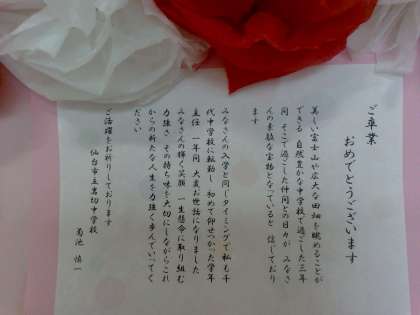 ご卒業
おめでとうございます
美しい富士山や広大な田畑を眺めることが
できる 自然豊かな中学校で過ごした三年
間 そこで過ごした仲間との日々が みなさ
んの素敵な宝物となっていると 信じており
ます
みなさんの入学と同じタイミングで私も千
代中学校に転勤し 初めて仰せつかった学年
主任 一年間 大変お世話になりました
みなさんの輝く笑顔 一生懸命に取り組む
力強さ その持ち味を大切にしながらこれ
からの新たな人生を力強く歩んでいってく
ださい
ご活躍をお祈りしております
仙台市立岩切中学校
菊池 慎一